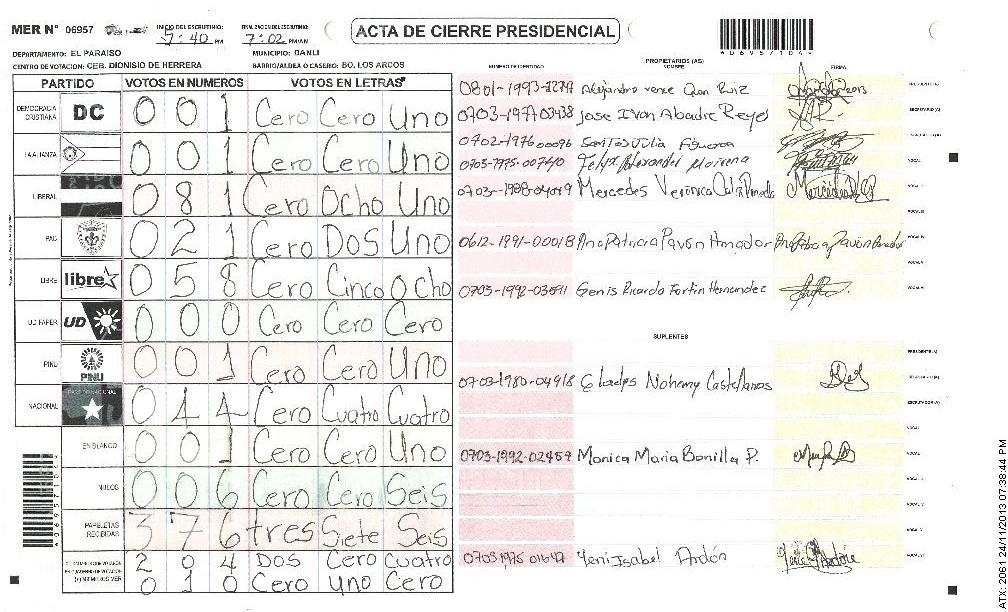 MER N° 06957
INICIO DEL ESCRUTINIO: 7:40 PM
FINALIZACION DEL ESCRUTINIO: 7:02 PM/AM
ACTA DE CIERRE PRESIDENCIAL
DEPARTAMENTO: EL PARAISO
MUNICIPIO: DANLI
CENTRO DE VOTACION: CEB. DIONISIO DE HERRERA
BARRIO/ALDEA O CASERIO: BO. LOS ARCOS
PARTIDO VOTOS EN NUMEROS VOTOS EN LETRAS
DEMOCRACIA CRISTIANA DC 0 0 1 Cero Cero Uno
LA ALIANZA 0 0 1 Cero Cero Uno
LIBERAL 0 8 1 Cero Ocho Uno
PAC 0 2 1 Cero Dos Uno
LIBRE libre 0 5 8 Cero Cinco Ocho
UD FAPER UD 0 0 0 Cero Cero Cero
PINU PINU 0 0 1 Cero Cero Uno
NACIONAL 0 4 4 Cero Cuatro Cuatro
EN BLANCO 0 0 1 Cero Cero Uno
NULOS 0 0 6 Cero Cero Seis
PAPELETAS RECIBIDAS 3 7 6 tres Siete Seis
2 0 4 Dos Cero cuatro
(+) MIEMBROS MER 0 1 0 Cero uno Cero
PROPIETARIOS (AS)
NUMERO DE IDENTIDAD NOMBRE FIRMA
PRESIDENTE (A)
Alejandro
SECRETARIO (A)
Jose Ivan Abadie Reyes
0702-1976 00096 Santos Julia Figueroa
VOCAL I
Mercedes Veronica
0612-1991-00018 Ana Patricia Pavon Amador
Genis Ricardo Fortin Hernandez
SUPLENTES
PRESIDENTE (A)
0703-1980-04918 Gladys Nohemy Castellanos
SECRETARIO (A)
ESCRUTADOR (A)
0703-1992-02457 Monica Maria Bonilla P.
Yeni Isabel Ardón
ATX: 2061 24/11/2013 07:38:44 PM